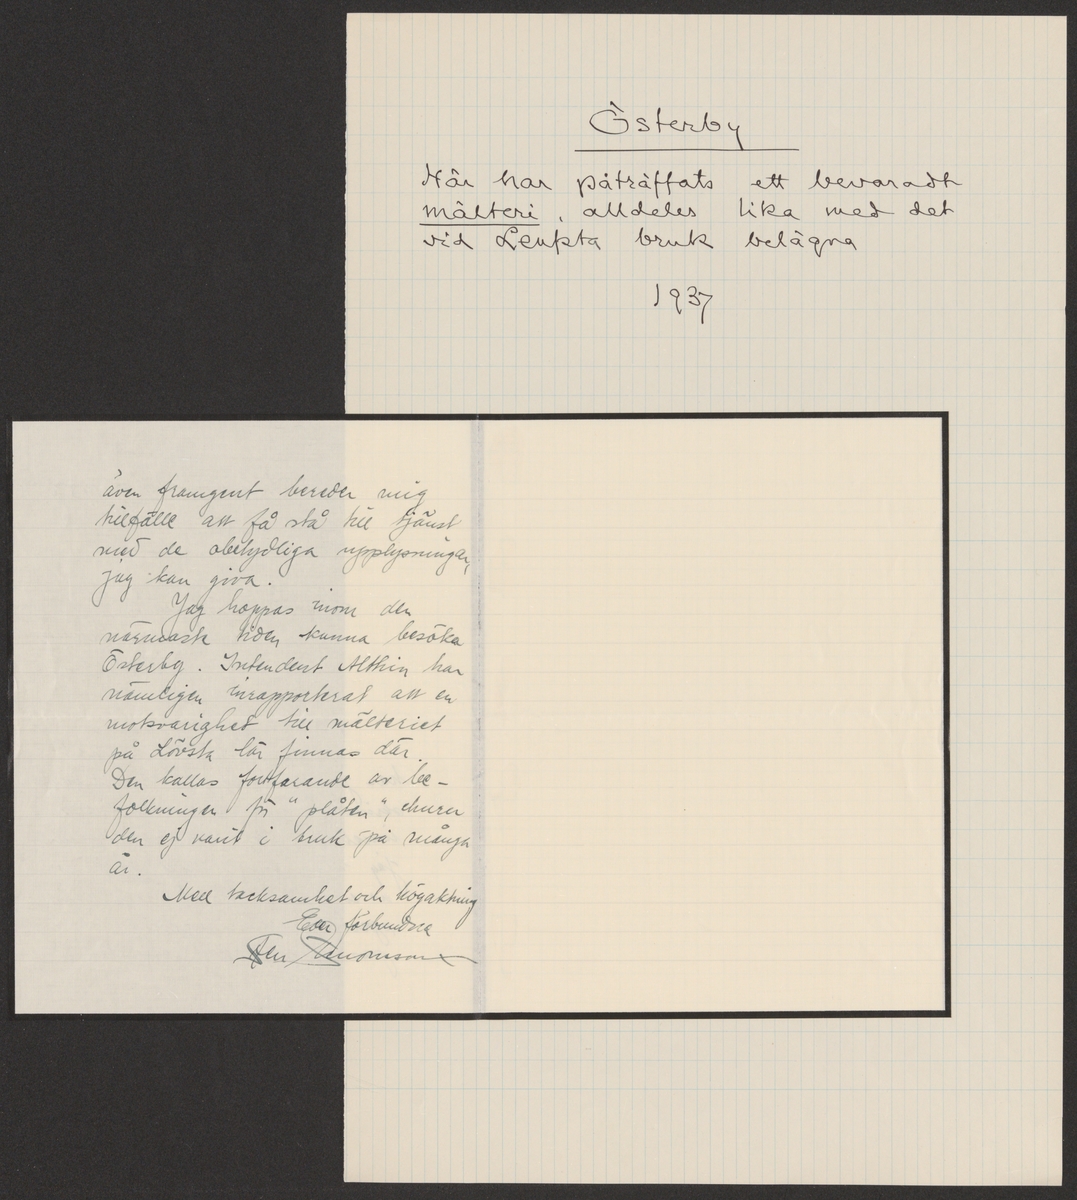 Österby
Här har påträffats ett bevaradt
mälteri, alldeles lika med det
vid Leufsta bruk belägna
1937
även framgent bereder mig
tillfälle att få stå till tjänst
med de obetydliga upplysningar,
jag kan giva.
Jag hoppas inom den
närmaste tiden kunna besöka
Österby. Intendent Althin har
nämligen inrapporterat att en
motsvarighet till mälteriet
på Lövsta lär finnas där.
Den kallas fortfarande av be-
folkningen för "plåten", churu
den ej varit i bruk på många
år.
Med tacksamhet och högaktning
Eder förbundna